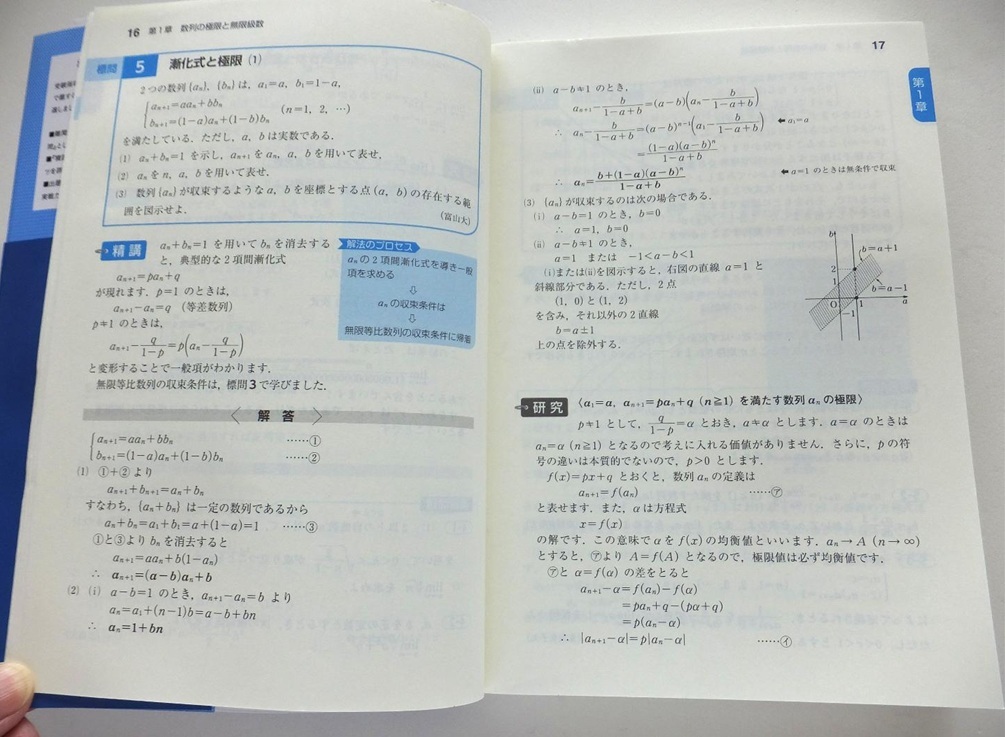 16 第1章 数列の極限と無限級数
標問 5 漸化式と極限 (1)
2つの数列{aₙ}, {bₙ}は, a₁=a, b₁=1-a,
aₙ₊₁=aaₙ+bbₙ
bₙ₊₁=(1-a)aₙ+(1-b)bₙ (n=1, 2, …)
を満たしている. ただし, a, bは実数である.
(1) aₙ+bₙ=1を示し, aₙ₊₁をaₙ, a, bを用いて表せ.
(2) aₙをn, a, bを用いて表せ.
(3) 数列{aₙ}が収束するようなa, bを座標とする点(a, b)の存在する範
囲を図示せよ.
(富山大)
精講 aₙ+bₙ=1を用いてbₙを消去する
と, 典型的な2項間漸化式
aₙ₊₁=paₙ+q
が現れます. p=1のときは,
aₙ₊₁-aₙ=q (等差数列)
p≠1のときは,
aₙ₊₁-q/(1-p)=p(aₙ-q/(1-p))
と変形することで一般項がわかります.
無限等比数列の収束条件は, 標問3で学びました.
解法のプロセス
aₙの2項間漸化式を導き一般
項を求める
⇩
aₙの収束条件は
⇩
無限等比数列の収束条件に帰着
〈 解 答 〉
aₙ₊₁=aaₙ+bbₙ ……①
bₙ₊₁=(1-a)aₙ+(1-b)bₙ ……②
(1) ①+②より
aₙ₊₁+bₙ₊₁=aₙ+bₙ
すなわち, {aₙ+bₙ}は一定の数列であるから
aₙ+bₙ=a₁+b₁=a+(1-a)=1 ……③
①と③よりbₙを消去すると
aₙ₊₁=aaₙ+b(1-aₙ)
∴ aₙ₊₁=(a-b)aₙ+b
(2) (i) a-b=1のとき, aₙ₊₁-aₙ=bより
aₙ=a₁+(n-1)b=a-b+bn
∴ aₙ=1+bn
17
第1章
(ii) a-b≠1のとき,
aₙ₊₁-b/(1-a+b)=(a-b)(aₙ-b/(1-a+b))
∴ aₙ-b/(1-a+b)=(a-b)ⁿ⁻¹(a₁-b/(1-a+b)) ⬅ a₁=a
=(1-a)(a-b)ⁿ/(1-a+b)
∴ aₙ=(b+(1-a)(a-b)ⁿ)/(1-a+b) ⬅ a=1のときは無条件で収束
(3) {aₙ}が収束するのは次の場合である.
(i) a-b=1のとき, b=0
∴ a=1, b=0
(ii) a-b≠1のとき,
a=1 または -1<a-b<1
(i)または(ii)を図示すると, 右図の直線 a=1 と
斜線部分である. ただし, 2点
(1, 0)と(1, 2)
を含み, それ以外の2直線
b=a±1
上の点を除外する.
b
b=a+1
2
1
b=a-1
O
1
a
-1
研究 〈a₁=a, aₙ₊₁=paₙ+q (n≧1) を満たす数列 aₙ の極限〉
p≠1として, q/(1-p)=α とおき, a≠α とします. a=α のときは
aₙ=α (n≧1) となるので考えに入れる価値がありません. さらに, pの符
号の違いは本質的でないので, p>0 とします.
f(x)=px+q とおくと, 数列 aₙ の定義は
aₙ₊₁=f(aₙ) ……㋐
と表せます. また, α は方程式
x=f(x)
の解です. この意味で α を f(x) の均衡値といいます. aₙ→A (n→∞)
とすると, ㋐より A=f(A) となるので, 極限値は必ず均衡値です.
㋐と α=f(α) の差をとると
aₙ₊₁-α=f(aₙ)-f(α)
=paₙ+q-(pα+q)
=p(aₙ-α)
∴ |aₙ₊₁-α|=p|aₙ-α| ……㋑